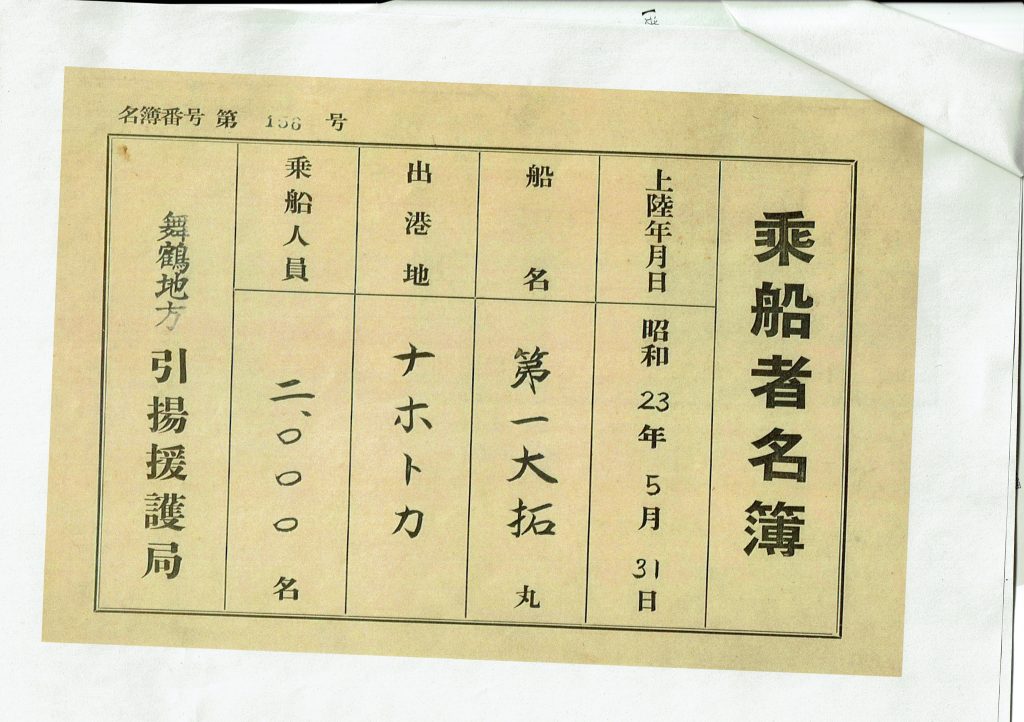 名簿番号 第 156 号
乗船者名簿
上陸年月日 昭和 23 年 5 月 31 日
船名 第一大拓丸
出港地 ナホトカ
乗船人員 二、〇〇〇名
舞鶴地方引揚援護局